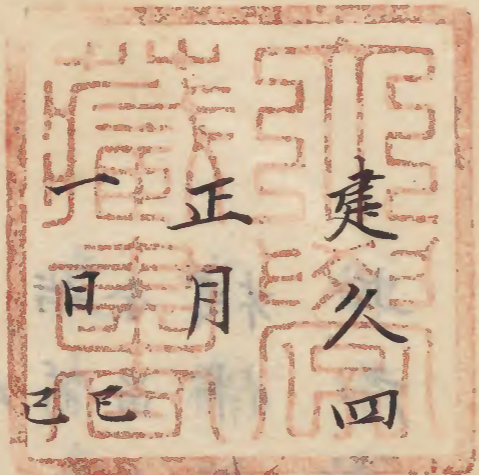 建久四
正月
一日己巳